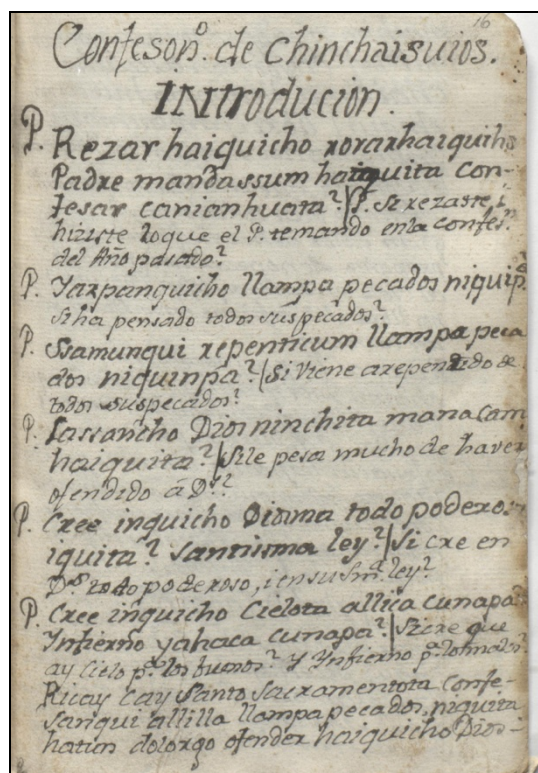 16
Confeson.º de Chinchaisuios.
INtroducion.
P. Rezar haiquicho rorarhaiquicho
Padre mandassum haiquita con-
fesar canianhuata? / P. Si rezaste, i
hiziste lo que el P. te mando en la confes.n
del Año pasado?
P. Yarpanquicho llampa pecados niquip.ª
Si ha pensado todos sus pecados?
P. Ssamunqui repenticum llampa peca
dos niquinpa? / Si viene arepentido de
todos sus pecados?
P. Lassancho Dios ninchita mana cam
haiquita? / Si le pesa mucho de haver
ofendido á D.s?
P. Cree inquicho Diosma todo podero-
iquita? Santissma ley? / Si cre en
D.s todo poderoso, i en su Sm.ª ley?
P. Cree inquicho Cielota allica cunapa
Ynfierno yahaca cunapa? / Si cre que
ay Cielo p.ª los buenos? Y Ynfierno p.ª los malos?
Ricay cay Santo Sacramentota Confe-
sanqui allilla llampa pecados niquita
hatun dolorgo ofender haiquicho Dios-